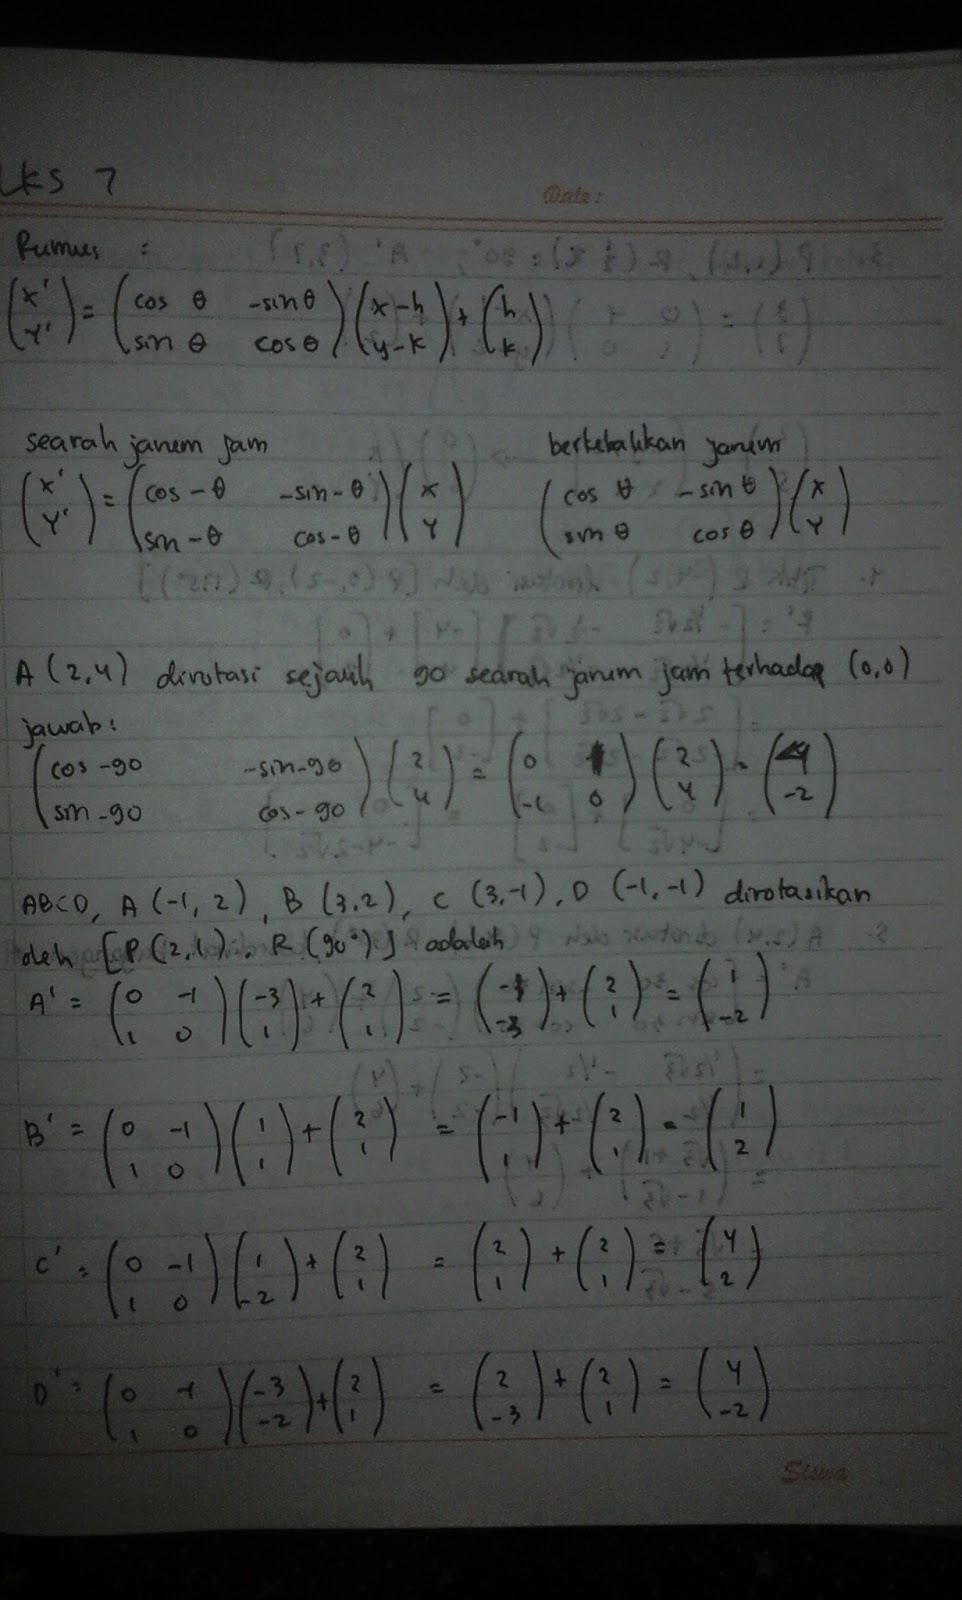 LKS 7
Date:
Rumus :
(x' y') = (cos θ -sin θ sin θ cos θ) (x-h y-k) + (h k)
searah jarum jam berkebalikan jarum
(x' y') = (cos -θ -sin -θ sin -θ cos -θ) (x y) (cos θ -sin θ sin θ cos θ) (x y)
A (2,4) dirotasi sejauh 90 searah jarum jam terhadap (0,0)
jawab:
(cos -90 -sin -90 sin -90 cos -90) (2 4) = (0 1 -1 0) (2 4) = (4 -2)
ABCD, A (-1, 2), B (3,2), C (3,-1), D (-1,-1) dirotasikan
oleh [P(2,1), R(90°)] adalah
A' = (0 -1 1 0) (-3 1) + (2 1) = (-1 -3) + (2 1) = (1 -2)
B' = (0 -1 1 0) (1 1) + (2 1) = (-1 1) + (2 1) = (1 2)
C' = (0 -1 1 0) (1 -2) + (2 1) = (2 1) + (2 1) = (4 2)
D' = (0 -1 1 0) (-3 -2) + (2 1) = (2 -3) + (2 1) = (4 -2)
Siswa